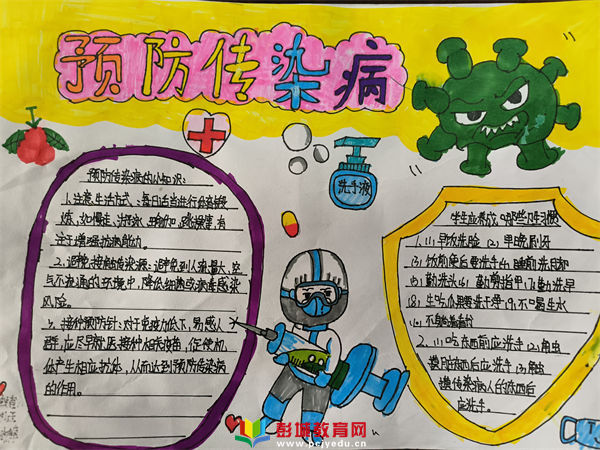 预防传染病
预防传染病的小知识:
1.注意生活方式:每日适当进行身体锻
炼,如慢走、游泳、瑜伽、跳操等,有
注于增强抗病能力。
2.避免接触传染源:避免到人流量大,空
气不流通的环境中,降低细菌或病毒感染
风险。
3.接种预防针:对于免疫力低下,易感人
群,应尽早就医接种相关疫苗,促使机
体产生相应抗体,从而达到预防传染病
的作用。
洗手液
学生应养成哪些卫生习惯
1.(1)早饮洗脸 (2)早晚刷牙
(3)饭前便后要洗手(4)睡前洗脚
(5)勤洗头(6)勤剪指甲(7)勤洗澡
(8)生吃瓜果要洗干净(9)不喝生水
2.(1)吃东西前应洗手(2)触虫
摸脏东西后应洗手(3)触虫
摸传染病人的东西后
应洗手。
彭城教育网
www.pcjyedu.cn